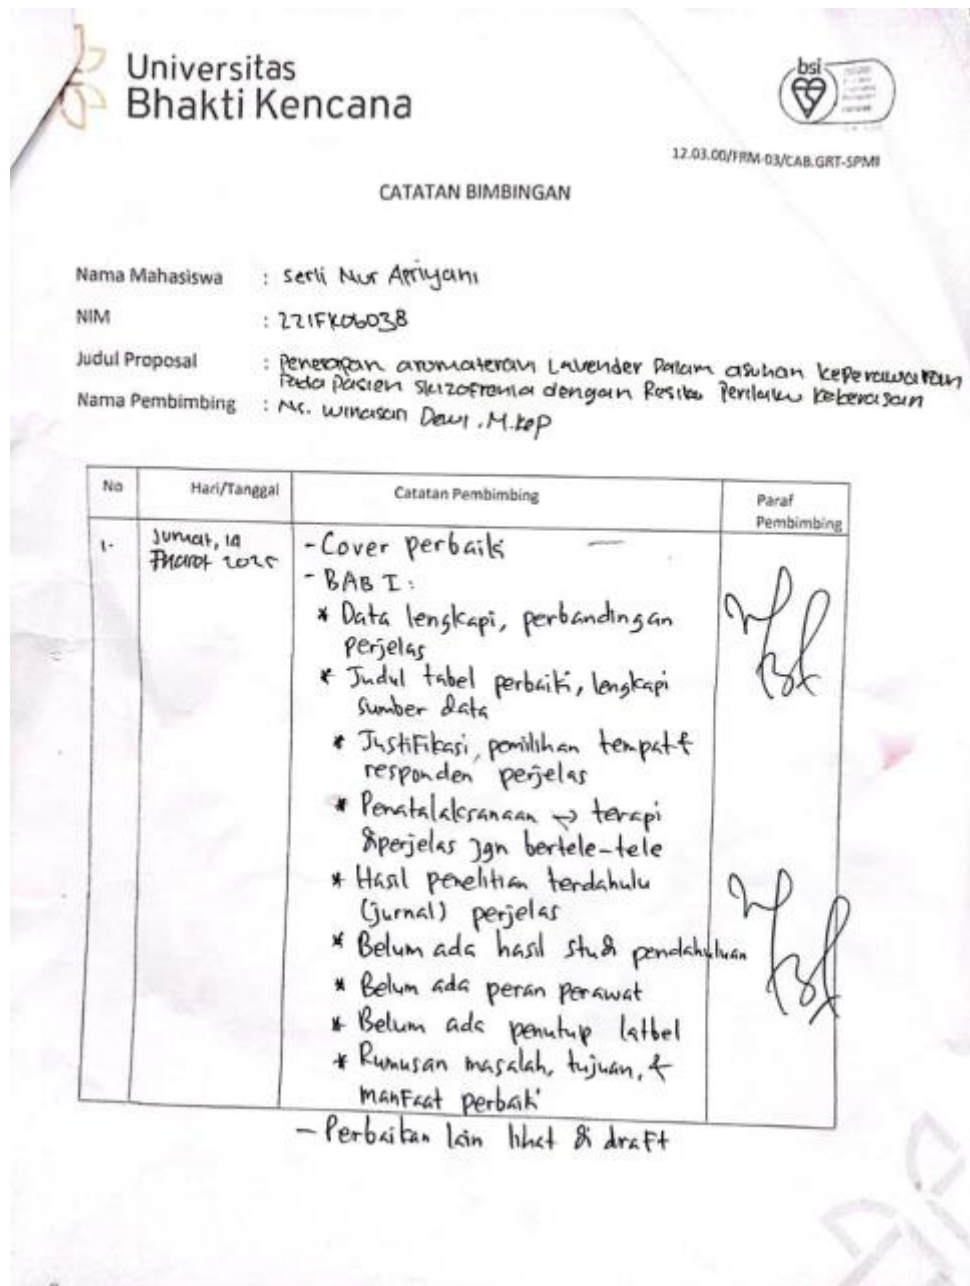 Universitas
Bhakti Kencana
bsi
12.03.00/FRM-03/CAB.GRT-SPMI
CATATAN BIMBINGAN
Nama Mahasiswa : Serli Nur Apriyani
NIM : 221FK06038
Judul Proposal : Penerapan aromaterapi Lavender Dalam asuhan keperawatan
Pada Pasien Skizofrenia dengan Resiko Perilaku kekerasan
Nama Pembimbing : Ns. Winasari Dewi, M.Kep
No Hari/Tanggal Catatan Pembimbing Paraf
Pembimbing
1. Jumat, 14 - Cover perbaiki
Maret 2025 - BAB I:
* Data lengkapi, perbandingan
perjelas
* Judul tabel perbaiki, lengkapi
sumber data
* Justifikasi, pemilihan tempat &
responden perjelas
* Penatalaksanaan → terapi
diperjelas jgn bertele-tele
* Hasil penelitian terdahulu
(jurnal) perjelas
* Belum ada hasil studi pendahuluan
* Belum ada peran perawat
* Belum ada penutup latbel
* Rumusan masalah, tujuan, &
manfaat perbaiki
- Perbaikan lain lihat di draft